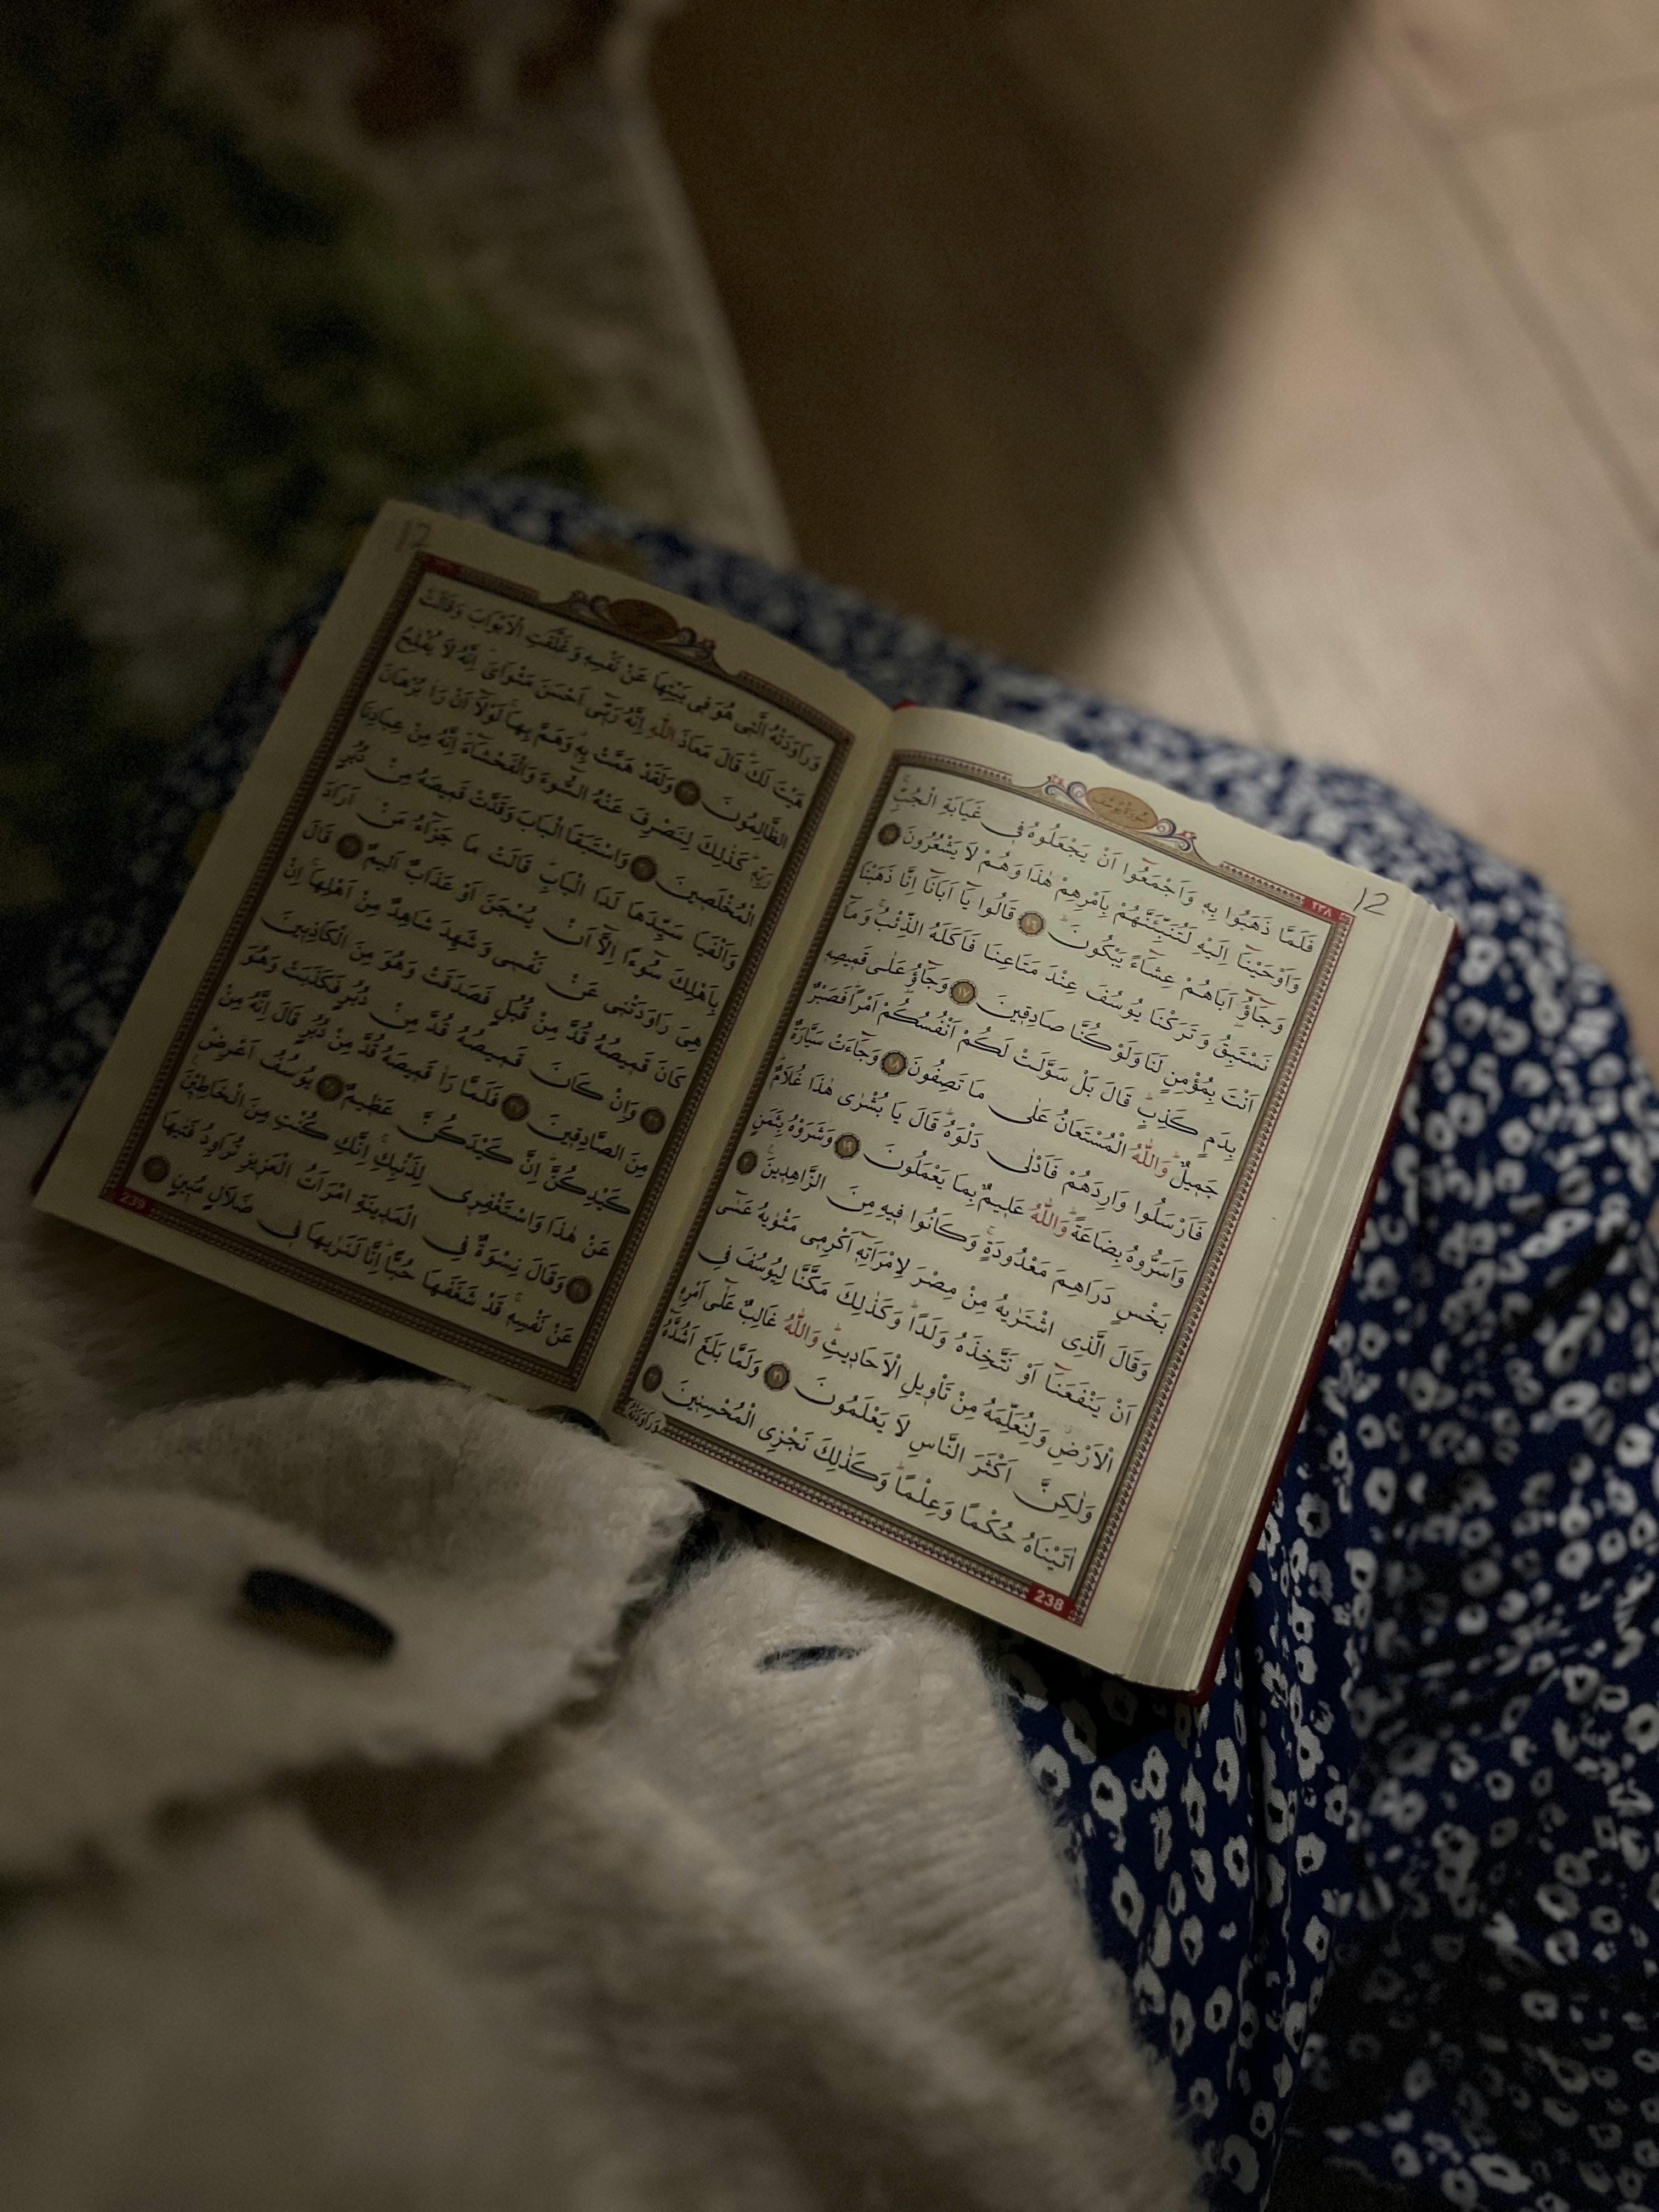 12
٢٣٨
سُورَةُ يُوسُفَ
فَلَمَّا ذَهَبُوا بِهِ وَاَجْمَعُٓوا اَنْ يَجْعَلُوهُ فِى غَيَابَةِ الْجُبِّۚ
وَاَوْحَيْنَٓا اِلَيْهِ لَتُنَبِّئَنَّهُمْ بِاَمْرِهِمْ هٰذَا وَهُمْ لَا يَشْعُرُونَ ١٥
وَجَٓاؤُٓ اَبَاهُمْ عِشَٓاءً يَبْكُونَۜ ١٦ قَالُوا يَٓا اَبَانَٓا اِنَّا ذَهَبْنَا
نَسْتَبِقُ وَتَرَكْنَا يُوسُفَ عِنْدَ مَتَاعِنَا فَاَكَلَهُ الذِّئْبُۚ وَمَٓا
اَنْتَ بِمُؤْمِنٍ لَنَا وَلَوْ كُنَّا صَادِقِينَ ١٧ وَجَٓاؤُ عَلٰى قَمِيصِهِ
بِدَمٍ كَذِبٍۜ قَالَ بَلْ سَوَّلَتْ لَكُمْ اَنْفُسُكُمْ اَمْرًاۜ فَصَبْرٌ
جَمِيلٌۜ وَاللّٰهُ الْمُسْتَعَانُ عَلٰى مَا تَصِفُونَ ١٨ وَجَٓاءَتْ سَيَّارَةٌ
فَاَرْسَلُوا وَارِدَهُمْ فَاَدْلٰى دَلْوَهُۜ قَالَ يَا بُشْرٰى هٰذَا غُلَامٌۜ
وَاَسَرُّوهُ بِضَاعَةًۜ وَاللّٰهُ عَلِيمٌ بِمَا يَعْمَلُونَ ١٩ وَشَرَوْهُ بِثَمَنٍ
بَخْسٍ دَرَاهِمَ مَعْدُودَةٍۚ وَكَانُوا فِيهِ مِنَ الزَّاهِدِينَ۟ ٢٠
وَقَالَ الَّذِى اشْتَرٰيهُ مِنْ مِصْرَ لِامْرَاَتِهِٓ اَكْرِمِى مَثْوٰيهُ عَسٰٓى
اَنْ يَنْفَعَنَٓا اَوْ نَتَّخِذَهُ وَلَدًاۜ وَكَذٰلِكَ مَكَّنَّا لِيُوسُفَ فِى
الْاَرْضِۘ وَلِنُعَلِّمَهُ مِنْ تَأْوِيلِ الْاَحَادِيثِۜ وَاللّٰهُ غَالِبٌ عَلٰٓى اَمْرِهِ
وَلٰكِنَّ اَكْثَرَ النَّاسِ لَا يَعْلَمُونَ ٢١ وَلَمَّا بَلَغَ اَشُدَّهُٓ
اٰتَيْنَاهُ حُكْمًا وَعِلْمًاۜ وَكَذٰلِكَ نَجْزِى الْمُحْسِنِينَ ٢٢
وَرَاوَدَتْهُ
238
12
وَرَاوَدَتْهُ الَّتِى هُوَ فِى بَيْتِهَا عَنْ نَفْسِهِ وَغَلَّقَتِ الْاَبْوَابَ وَقَالَتْ
هَيْتَ لَكَۜ قَالَ مَعَاذَ اللّٰهِ اِنَّهُ رَبِّٓى اَحْسَنَ مَثْوَاىَۜ اِنَّهُ لَا يُفْلِحُ
الظَّالِمُونَ ٢٣ وَلَقَدْ هَمَّتْ بِهِۚ وَهَمَّ بِهَاۚ لَوْلَٓا اَنْ رَاٰ بُرْهَانَ
رَبِّهِۜ كَذٰلِكَ لِنَصْرِفَ عَنْهُ السُّٓوءَ وَالْفَحْشَٓاءَۜ اِنَّهُ مِنْ عِبَادِنَا
الْمُخْلَصِينَ ٢٤ وَاسْتَبَقَا الْبَابَ وَقَدَّتْ قَمِيصَهُ مِنْ دُبُرٍ
وَاَلْفَيَا سَيِّدَهَا لَدَا الْبَابِۜ قَالَتْ مَا جَزَٓاءُ مَنْ اَرَادَ
بِاَهْلِكَ سُٓوءًا اِلَّٓا اَنْ يُسْجَنَ اَوْ عَذَابٌ اَلِيمٌ ٢٥ قَالَ
هِىَ رَاوَدَتْنِى عَنْ نَفْسِى وَشَهِدَ شَاهِدٌ مِنْ اَهْلِهَاۚ اِنْ
كَانَ قَمِيصُهُ قُدَّ مِنْ قُبُلٍ فَصَدَقَتْ وَهُوَ مِنَ الْكَاذِبِينَ
٢٦ وَاِنْ كَانَ قَمِيصُهُ قُدَّ مِنْ دُبُرٍ فَكَذَبَتْ وَهُوَ
مِنَ الصَّادِقِينَ ٢٧ فَلَمَّا رَاٰ قَمِيصَهُ قُدَّ مِنْ دُبُرٍ قَالَ اِنَّهُ مِنْ
كَيْدِكُنَّۜ اِنَّ كَيْدَكُنَّ عَظِيمٌ ٢٨ يُوسُفُ اَعْرِضْ
عَنْ هٰذَا وَاسْتَغْفِرِى لِذَنْبِكِۚ اِنَّكِ كُنْتِ مِنَ الْخَاطِئِينَ۟
٢٩ وَقَالَ نِسْوَةٌ فِى الْمَدِينَةِ امْرَاَتُ الْعَزِيزِ تُرَاوِدُ فَتٰيهَا
عَنْ نَفْسِهِۚ قَدْ شَغَفَهَا حُبًّاۜ اِنَّا لَنَرٰيهَا فِى ضَلَالٍ مُبِينٍ ٣٠
239